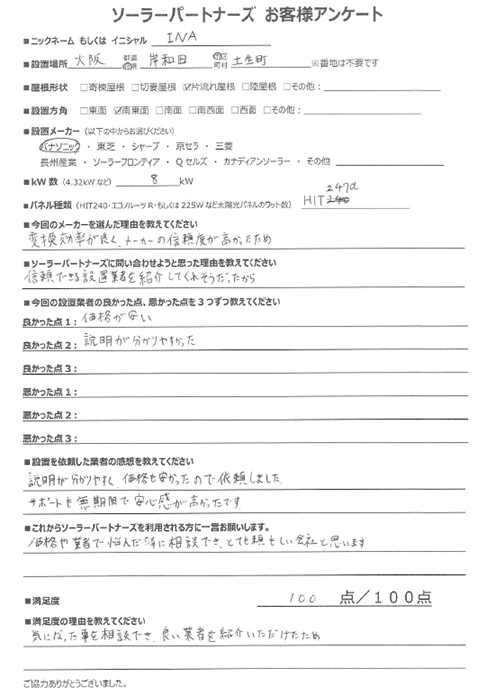 ソーラーパートナーズ お客様アンケート
■ニックネーム もしくは イニシャル INA
■設置場所 大阪 都道府県 岸和田 市区町村 土生町 ※番地は不要です
■屋根形状 □寄棟屋根 □切妻屋根 ☑片流れ屋根 □陸屋根 □その他:
■設置方角 □東面 ☑南東面 □南面 □南西面 □西面 □その他:
■設置メーカー (以下の中からお選びください)
パナソニック ・ 東芝 ・ シャープ ・ 京セラ ・ 三菱
長州産業 ・ ソーラーフロンティア ・ Qセルズ ・ カナディアンソーラー ・ その他
■kW数 (4.32kWなど) 8 kW
247α
■パネル種類 (HIT240・エコノルーツR・もしくは225Wなど太陽光パネルのワット数) HIT240
■今回のメーカーを選んだ理由を教えてください
変換効率が良く、メーカーの信頼度が高かったため
■ソーラーパートナーズに問い合わせようと思った理由を教えてください
信頼できる設置業者を紹介してくれそうだったから
■今回の設置業者の良かった点、悪かった点を3つずつ教えてください
良かった点1: 価格が安い
良かった点2: 説明が分かりやすかった
良かった点3:
悪かった点1:
悪かった点2:
悪かった点3:
■設置を依頼した業者の感想を教えてください
説明が分かりやすく、価格も安かったので依頼しました
サポートも無期限で安心感が高かったです
■これからソーラーパートナーズを利用される方に一言お願いします。
価格や業者で悩んだ時に相談でき、とても頼もしい会社と思います
■満足度 100 点/100点
■満足度の理由を教えてください
気になった事を相談でき、良い業者を紹介いただけたため
ご協力ありがとうございました。